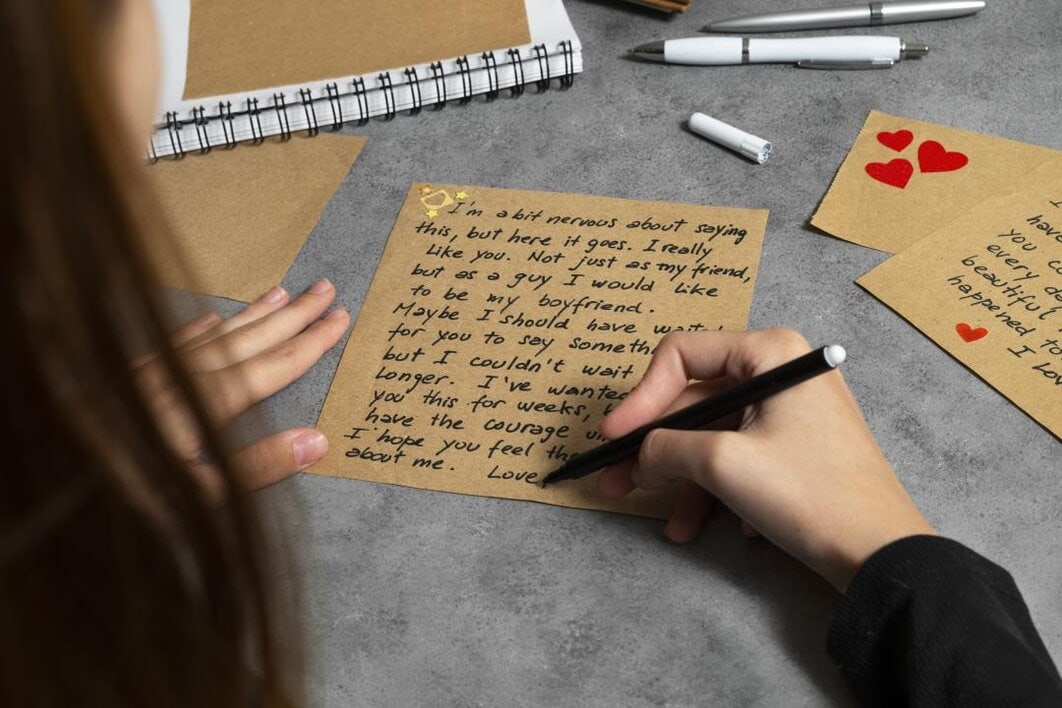 I'm a bit nervous about saying
this, but here it goes. I really
Like you. Not just as my friend,
but as a guy I would like
to be my boyfriend.
Maybe I should have
for you to say
but I couldn't wait
Longer. I've
you this for weeks,
have the courage
I hope you feel
about me. Love,
you
every
beautiful
happened to
I